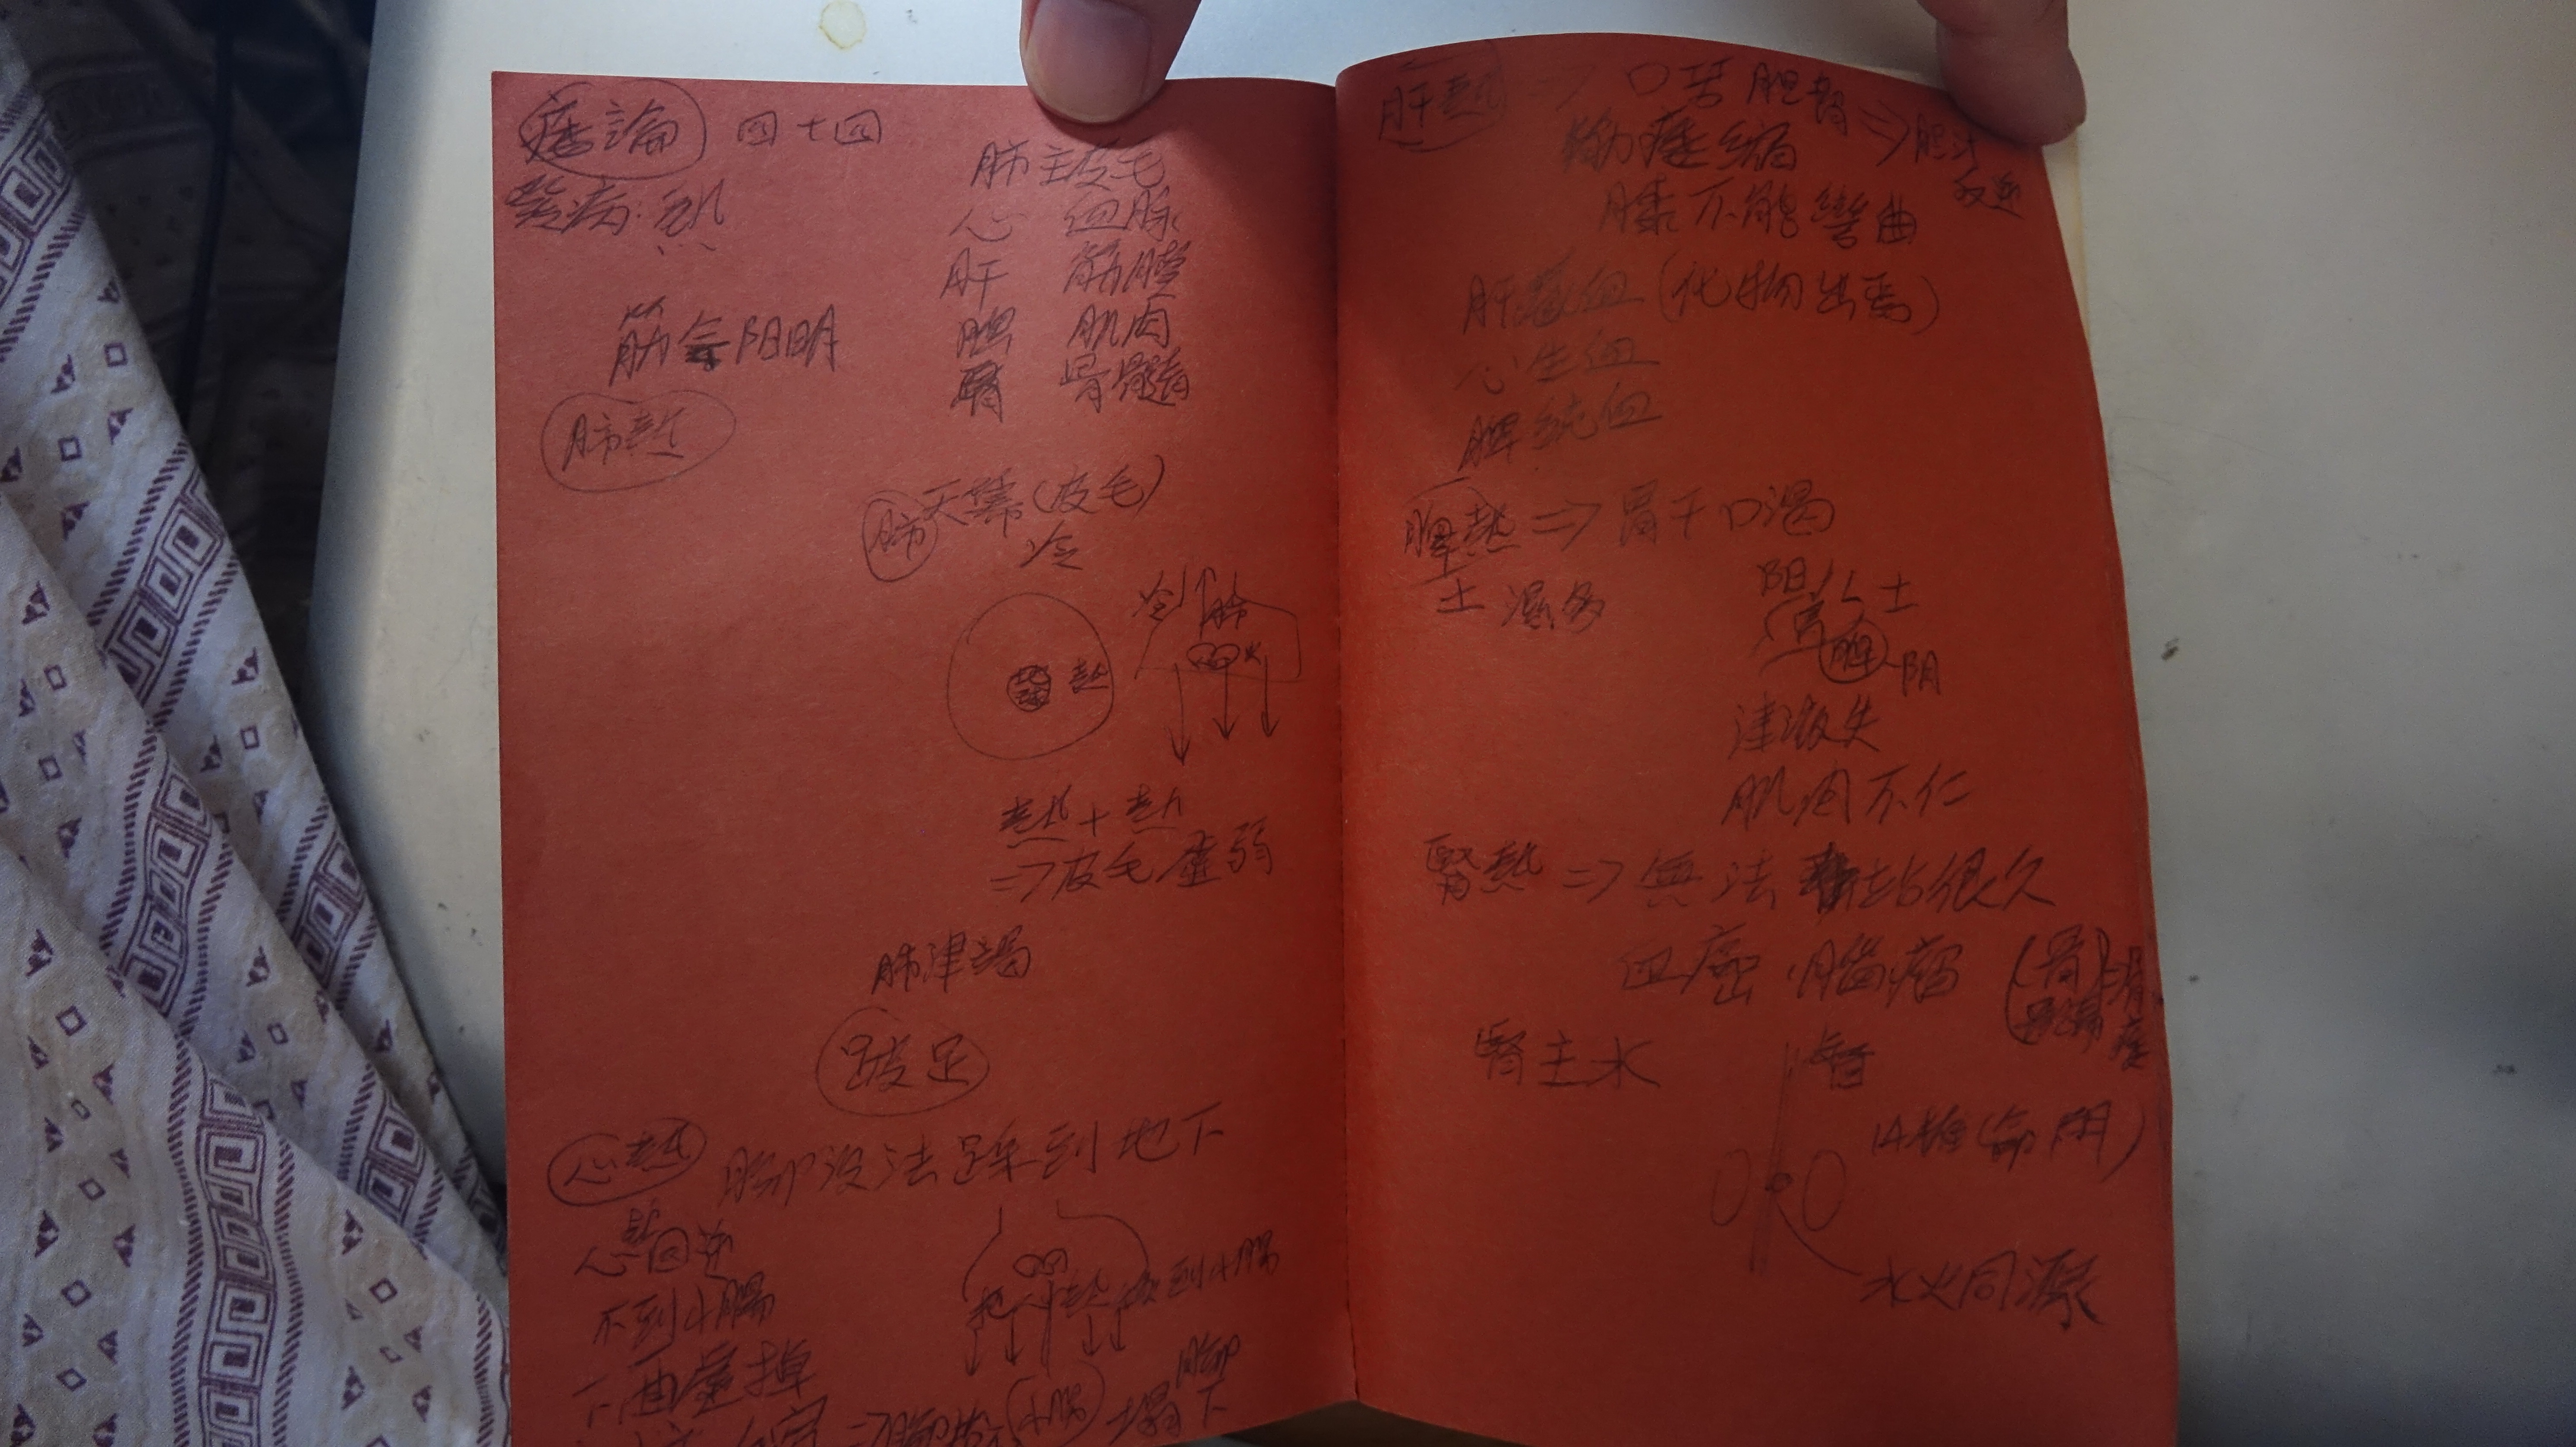 痿論 四十四
痿病:熱
肺主皮毛
心 血脉
肝 筋膜
脾 肌肉
腎 骨髓
筋会阳明
肺熱
肺 天幕(皮毛)
冷
冷 肺
地球 熱
火
熱+熱
⇒皮毛虛弱
肺津竭
跛足
心熱 腳沒法踩到地下
心熱回逆
不到小腸
把心熱液到小腸
下面虛掉
小腸 腳
下
肝熱 ⇒ 口苦 胆胃 ⇒ 胆汁
筋痿縮 反逆
膝不能彎曲
肝藏血(化物出焉)
心生血
脾統血
脾熱 ⇒ 胃干口渴
土 濕多
阳 土
胃
脾 阴
津液失
肌肉不仁
腎熱 ⇒ 無法站很久
血癌 腦瘤
腎主水 脊
14椎(命門)
水火同源